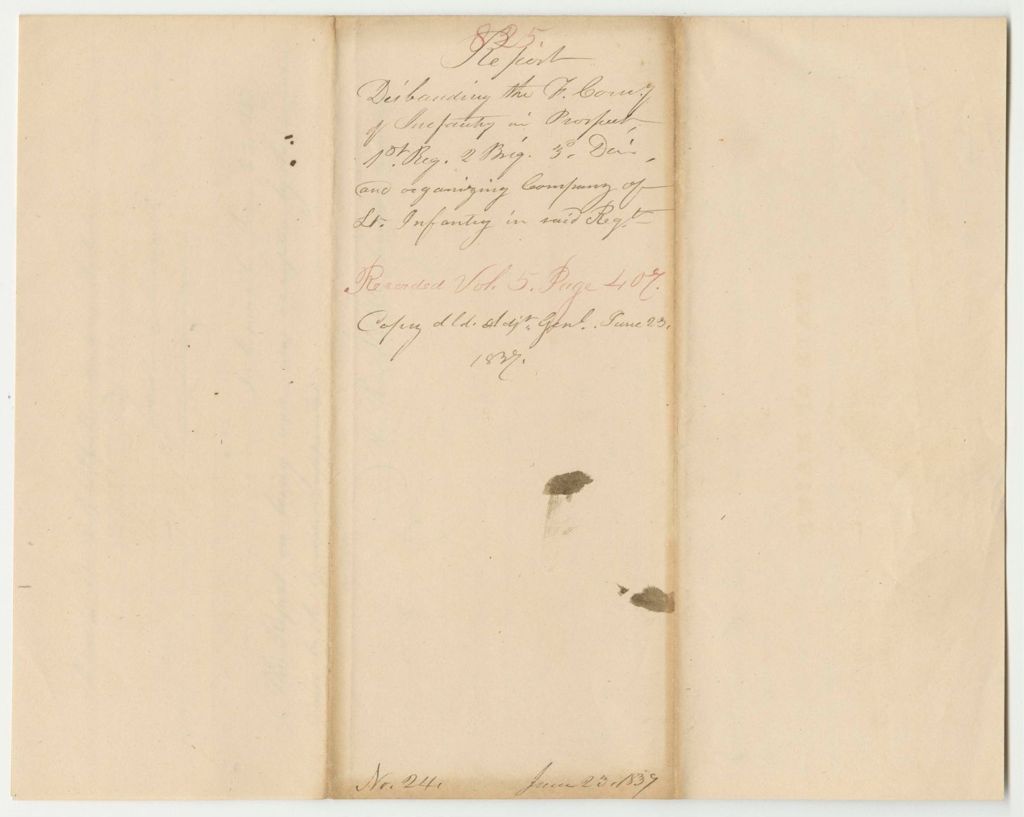 825
Report
Disbanding the F. Comy
of Infantry in Prospect,
1st. Reg. 2 Brig. 3d. Divn,
and organizing Company of
Lt. Infantry in said Regt.
Recorded Vol. 5. Page 407.
Copy dld. Adjt. Genl. June 23.
1837.
No. 24. June 23. 1837